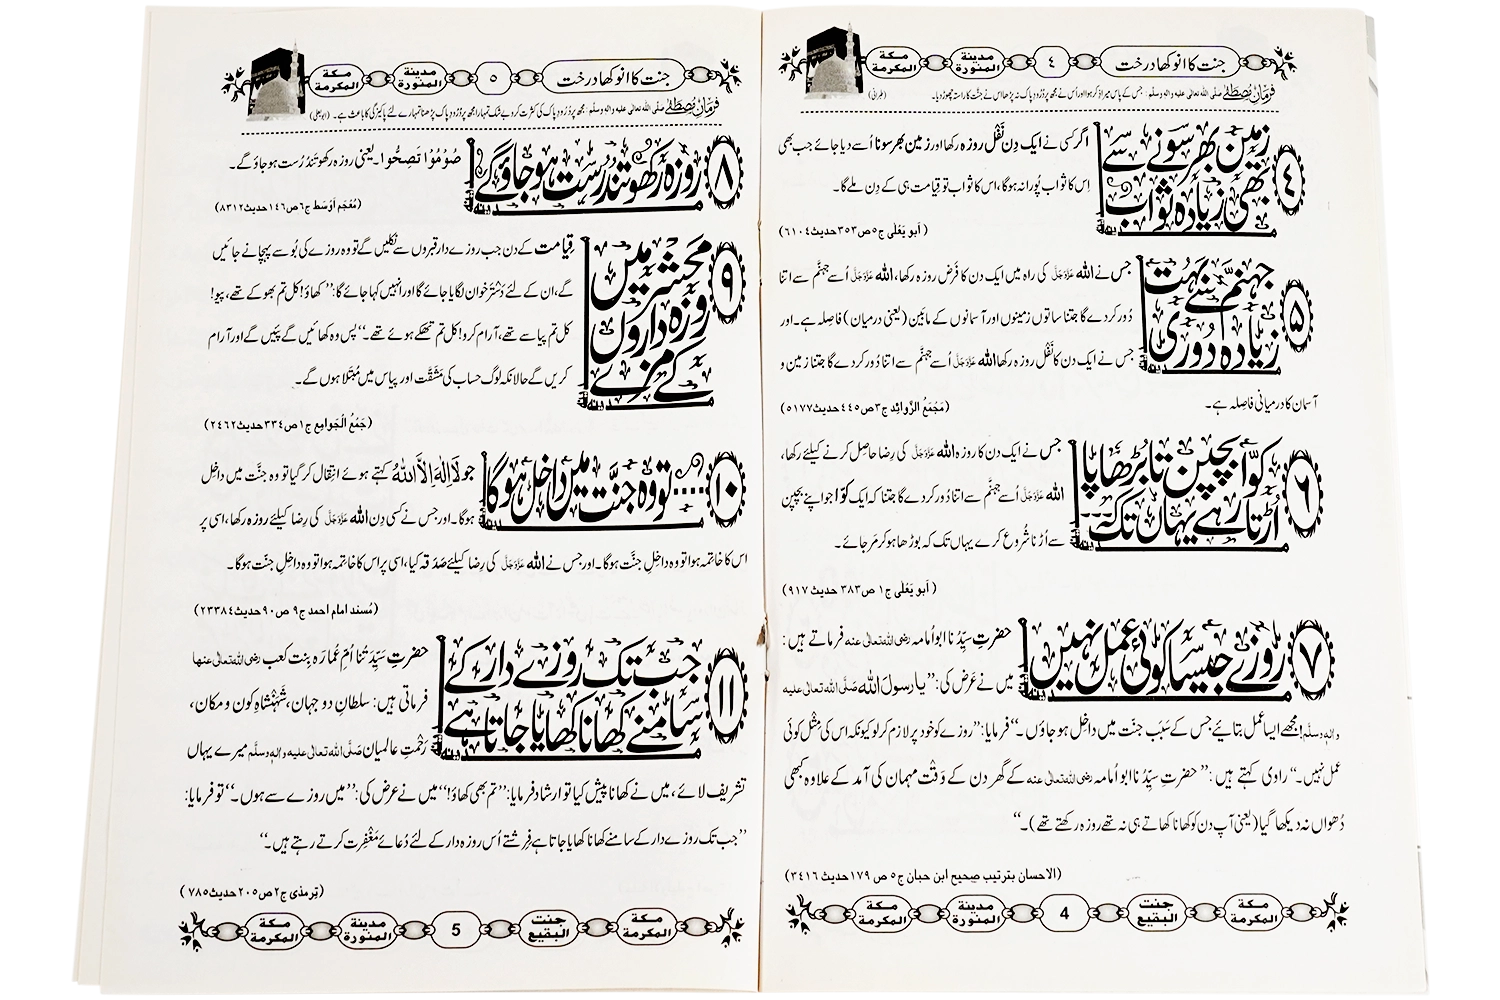 جنت کا انوکھا درخت
٤
مدينة المنورة
مكة المكرمة
فرمانِ مصطفٰے صلی اللہ تعالی علیہ والہ وسلم : جس کے پاس میرا ذکر ہوا اور اُس نے مجھ پر دُرُودِ پاک نہ پڑھا اس نے جنّت کا راستہ چھوڑ دیا۔ (طبرانی)
﴿٤﴾ زمین بھر سونے سے بھی زیادہ ثواب
اگر کسی نے ایک دِن نَفْل روزہ رکھا اور زمین بھر سونا اُسے دیا جائے جب بھی
اِس کا ثواب پُورا نہ ہوگا، اس کا ثواب تو قِیامت ہی کے دِن ملے گا۔
( اَبو یَعْلٰی ج٥ ص٣٥٣ حدیث ٦١٠٤)
﴿٥﴾ جہنَّم سے بہت زیادہ دُوری
جس نے اللہ عَزَّوَجَلَّ کی راہ میں ایک دن کا فَرْض روزہ رکھا، اللہ عَزَّوَجَلَّ اُسے جہنَّم سے اتنا
دُور کردے گا جتنا ساتوں زمینوں اور آسمانوں کے مابَین (یعنی درمیان) فاصِلہ ہے۔ اور
جس نے ایک دن کا نَفْل روزہ رکھا اللہ عَزَّوَجَلَّ اُسے جہنَّم سے اتنا دُور کردے گا جتنا زمین و
آسمان کا درمیانی فاصِلہ ہے۔
(مَجْمَعُ الزَّوائِد ج٣ ص٤٤٥ حدیث ٥١٧٧)
﴿٦﴾ کوّا بچپن تا بُڑھاپا اُڑتا رہے یہاں تک کہ...
جس نے ایک دن کا روزہ اللہ عَزَّوَجَلَّ کی رِضا حاصِل کرنے کیلئے رکھا،
اللہ عَزَّوَجَلَّ اُسے جہنَّم سے اتنا دُور کردے گا جتنا کہ ایک کوّا جو اپنے بچپن
سے اُڑنا شُروع کرے یہاں تک کہ بوڑھا ہو کر مَر جائے۔
( اَبو یَعْلٰی ج١ ص٣٨٣ حدیث ٩١٧)
﴿٧﴾ روزے جیسا کوئی عمل نہیں
حضرتِ سیِّدُنا ابو اُمامہ رضی اللہ تعالی عنہ فرماتے ہیں :
میں نے عرض کی: ”یا رسولَ اللہ صَلَّی اللہ تعالٰی علیہ
والہٖ وسلَّم! مجھے ایسا عمل بتایئے جس کے سَبَب جنّت میں داخل ہو جاؤں۔“ فرمایا: ”روزے کو خود پر لازم کرلو کیونکہ اس کی مِثْل کوئی
عمل نہیں۔“ راوی کہتے ہیں: ” حضرتِ سیِّدُنا ابو اُمامہ رضی اللہ تعالی عنہ کے گھر دن کے وَقْت مہمان کی آمد کے علاوہ کبھی
دُھواں نہ دیکھا گیا (یعنی آپ دن کو کھانا کھاتے ہی نہ تھے روزہ رکھتے تھے)۔“
(الاحسان بترتیب صحیح ابن حبان ج٥ ص ١٧٩ حدیث ٣٤١٦)
مكة المكرمة
جنت البقيع
4
مدينة المنورة
مكة المكرمة
جنت کا انوکھا درخت
٥
مدينة المنورة
مكة المكرمة
فرمانِ مصطفٰے صلی اللہ تعالی علیہ والہ وسلم : مجھ پر دُرُودِ پاک کی کثرت کرو بے شک تمہارا مجھ پر دُرُودِ پاک پڑھنا تمہارے لئے پاکیزگی کا باعث ہے۔ (ابو یعلی)
﴿٨﴾ روزہ رکھو تندُرُست ہو جاؤ گے
صُوْمُوْا تَصِحُّوْا۔ یعنی روزہ رکھو تَندُرُست ہو جاؤ گے۔
(مُعْجَم اَوْسَط ج٦ ص١٤٦ حدیث ٨٣١٢)
﴿٩﴾ محشر میں روزہ داروں کے مزے
قِیامت کے دن جب روزے دار قبروں سے نکلیں گے تو وہ روزے کی بُو سے پہچانے جائیں
گے، ان کے لئے دَسْترخوان لگایا جائے گا اور انہیں کہا جائے گا: ”کھاؤ! کل تم بھوکے تھے، پیو!
کل تم پیاسے تھے، آرام کرو! کل تم تھکے ہوئے تھے۔“ پس وہ کھائیں گے پئیں گے اور آرام
کریں گے حالانکہ لوگ حساب کی مَشَقَّت اور پیاس میں مُبْتَلا ہوں گے۔
(جَمْعُ الْجَوامِع ج١ ص٣٣٤ حدیث ٢٤٦٢)
﴿١٠﴾ ....تو وہ جنَّت میں داخل ہوگا
جو لَآ اِلٰہَ اِلَّا اللّٰہُ کہتے ہوئے انتِقال کرگیا تو وہ جنَّت میں داخِل
ہوگا۔ اور جس نے کسی دِن اللہ عَزَّوَجَلَّ کی رِضا کیلئے روزہ رکھا، اسی پر
اس کا خاتمہ ہوا تو وہ داخِلِ جنّت ہوگا۔ اور جس نے اللہ عَزَّوَجَلَّ کی رِضا کیلئے صَدَقہ کیا، اسی پر اس کا خاتمہ ہوا تو وہ داخِلِ جنت ہوگا۔
(مُسند امام احمد ج٩ ص ٩٠ حدیث ٢٣٣٨٤)
﴿١١﴾ جب تک روزے دار کے سامنے کھانا کھایا جاتا ہے
حضرتِ سَیِّدَتُنا اُمِّ عُمَارَہ بِنت کعب رضی اللہ تعالی عنہا
فرماتی ہیں: سلطانِ دو جہان، شَہَنْشاہِ کون و مکان،
رَحْمتِ عالمیان صَلَّی اللہ تعالٰی علیہ والہٖ وسلَّم میرے یہاں
تشریف لائے، میں نے کھانا پیش کیا تو ارشاد فرمایا: ”تم بھی کھاؤ!“ میں نے عرض کی: ”میں روزے سے ہوں۔“ تو فرمایا:
”جب تک روزے دار کے سامنے کھانا کھایا جاتا ہے فِرِشتے اُس روزہ دار کے لئے دُعائے مَغْفِرت کرتے رہتے ہیں۔“
(تِرمذی ج٢ ص٢٠٥ حدیث ٧٨٥)
مكة المكرمة
جنت البقيع
5
مدينة المنورة
مكة المكرمة